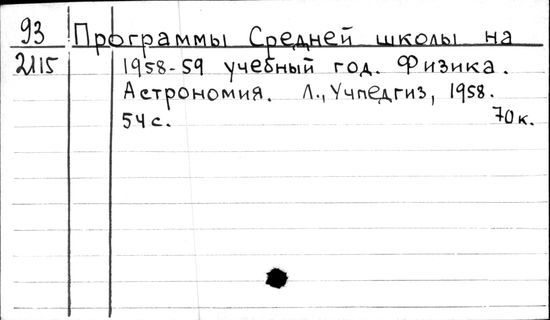 93 Программы Средней школы на
2115 1958-59 учебный год. Физика.
Астрономия. Л., Учпедгиз, 1958.
54с. 70к.